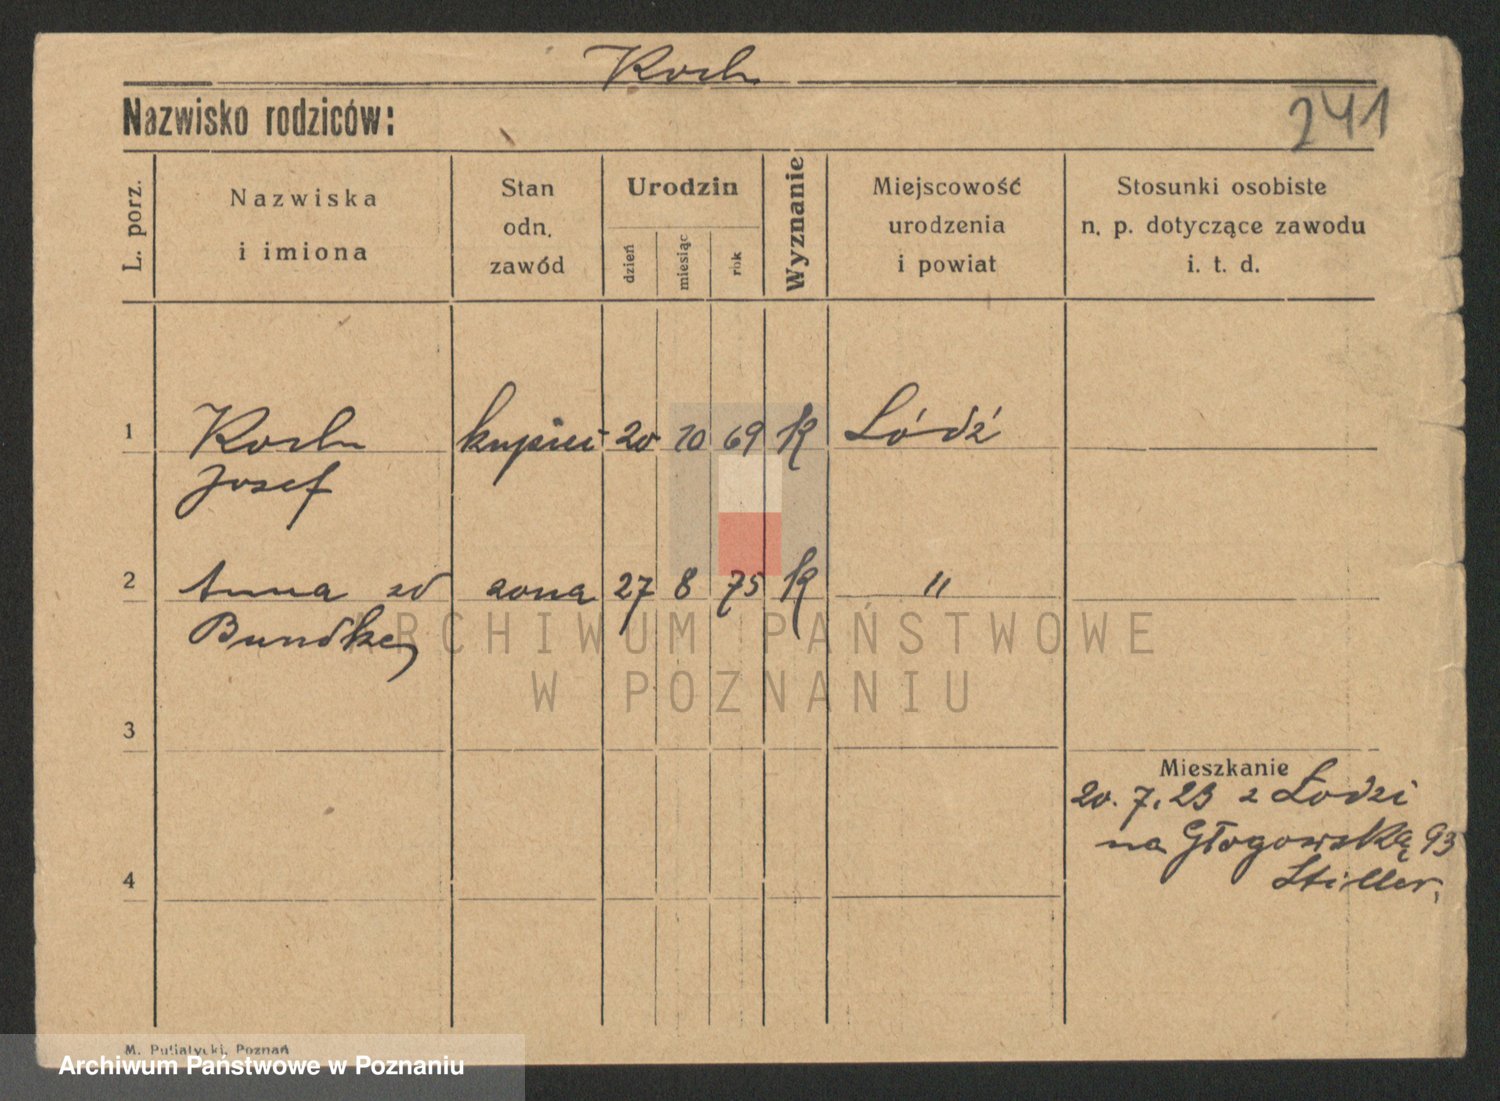 Koch
Nazwisko rodziców:
241
L. porz.
Nazwiska
i imiona
Stan
odn.
zawód
Urodzin
dzień
miesiąc
rok
Wyznanie
Miejscowość
urodzenia
i powiat
Stosunki osobiste
n. p. dotyczące zawodu
i. t. d.
1 Koch kupiec 20 10 69 K Łódź
Josef
2 Anna zd żona 27 8 75 K "
Bundke
ARCHIWUM PAŃSTWOWE
W POZNANIU
3
Mieszkanie
20. 7. 23 z Łodzi
na Głogowską 93
4
Stiller.
M. Putiatycki, Poznań
Archiwum Państwowe w Poznaniu